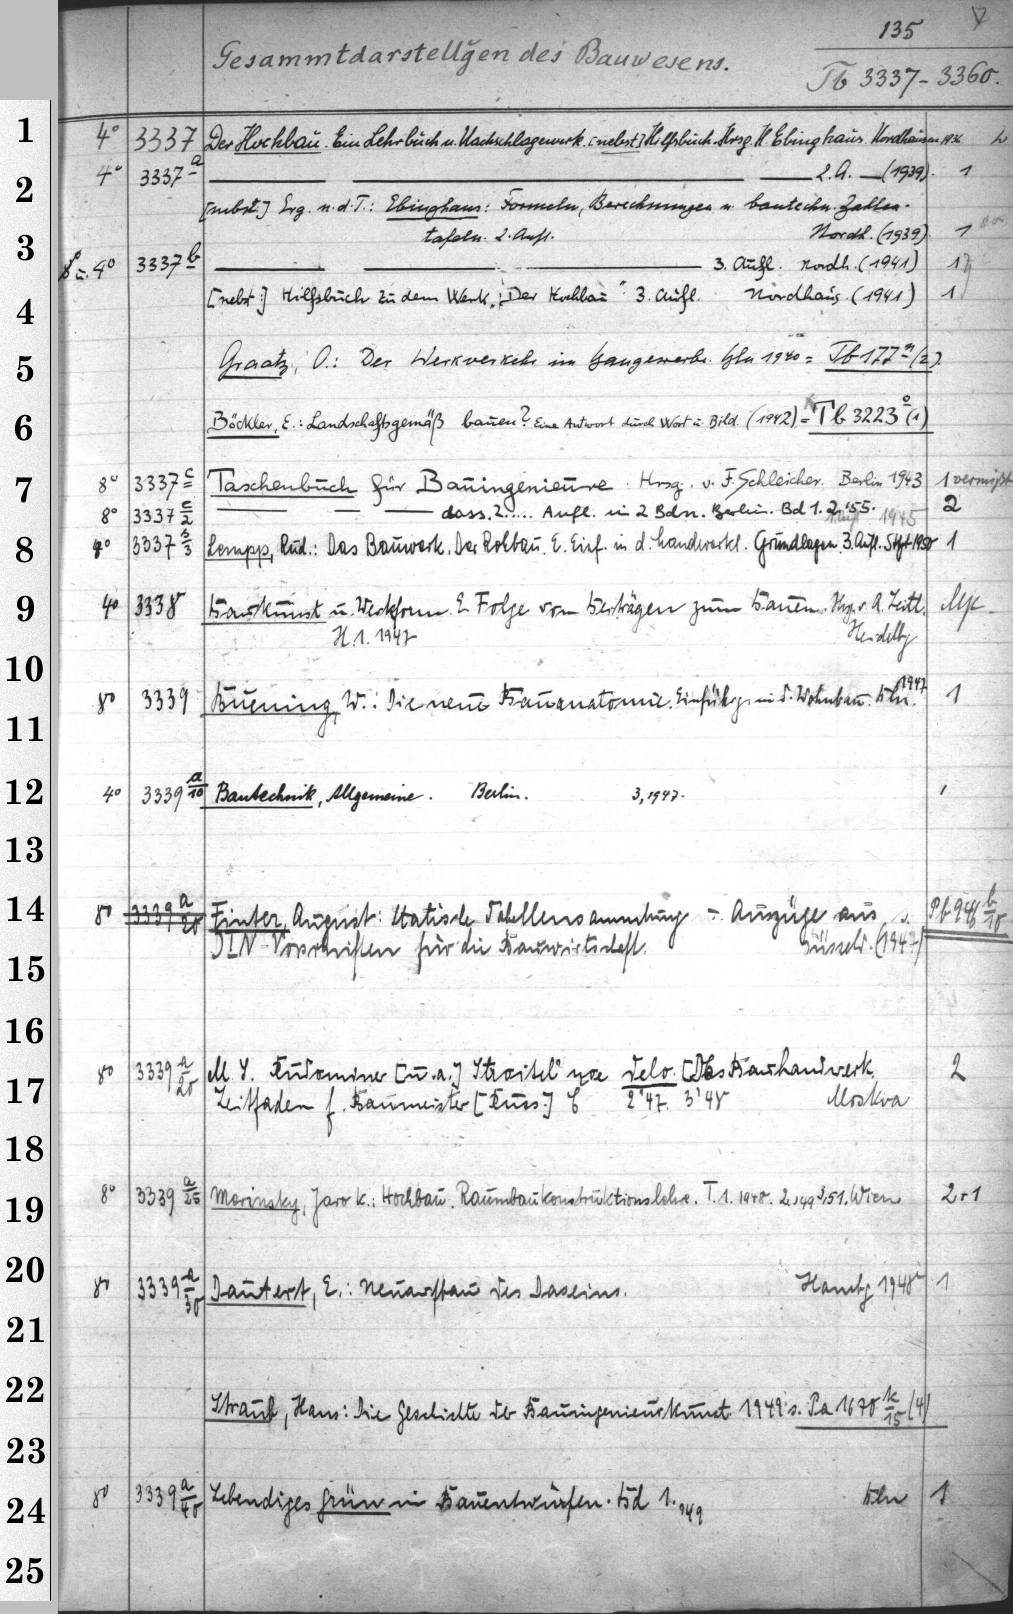 135
Gesammtdarstellğen des Bauwesens.
Tb 3337-3360.
1 4° 3337 Der Hochbau. Ein Lehrbuch u. Nachschlagewerk. [nebst] Hilfsbuch. Hrsg. H. Ebinghaus. Nordhausen 1936 2
2 4° 3337 a — — — 2. A. — (1939). 1
[nebst:] Erg. u. d. T.: Ebinghaus: Formeln, Berechnungen u. bautechn. Zahlen-
3 tafeln. 2. Aufl. Nordh. (1939) 1
u. 4° 3337 b — — — 3. Aufl. Nordh. (1941) 1
4 [nebst:] Hilfsbuch zu dem Werk „Der Hochbau" 3. Aufl. Nordhaus. (1941) 1
5 Graatz, O.: Der Werkverkehr im Baugewerbe. Bln 1940 = Tb 177 (2).
6 Böckler, E.: Landschaftsgemäß bauen? Eine Antwort durch Wort u. Bild. (1942) = Tb 3223 o (1)
7 8° 3337 c Taschenbuch für Bauingenieure. Hrsg. v. F. Schleicher. Berlin 1943 1 vermißt
8° 3337 c/2 — — — dass. 2. ... Aufl. in 2 Bdn. Berlin. Bd 1. 2. '55. 2
8 4° 3337 c/3 Lempp, Rud.: Das Bauwerk. Der Rohbau. E. Einf. in d. handwerkl. Grundlagen. 3. Aufl. Stgt 1950 1
9 4° 3338 Baukunst u. Werkform. E. Folge von Beiträgen zum Bauen. Hrsg. v. A. Leitl.
H. 1. 1947 Heidelbg
10
8° 3339 Buening, W.: Die neue Bauanatomie. Einführg in d. Wohnbau. Bln. 1947 1
11
12 4° 3339 a/10 Bautechnik, Allgemeine. Berlin. 3, 1947.
13
14 8° 3339 a/20 Finter, August: Statische Tabellensammlung u. Auszüge aus s. Pb 948 b/10
DIN-Vorschriften für die Bauwirtschaft. Düsseld. (1947)
15
16
8° 3339 a/20 M. Y. Kudominer [u. a.] Stroitel'noe delo. [Das Bauhandwerk. 2
17 Leitfaden f. Baumeister [Russ.] 2'47. 3'48 Moskva
18
19 8° 3339 a/25 Morinsky, Jaro K.: Hochbau. Raumbaukonstruktionslehre. T. 1. 1948. 2. 1949 3, 51. Wien 2+1
20
8° 3339 a/30 Dautert, E.: Neuaufbau des Daseins. Hambg 1948 1
21
22 Straub, Hans: Die Geschichte der Bauingenieurkunst 1949 s. Pa 1670 k/15 (4)
23
24 8° 3339 a/40 Lebendiges Grün in Bauentwürfen. Bd 1. 1949 Bln 1
25